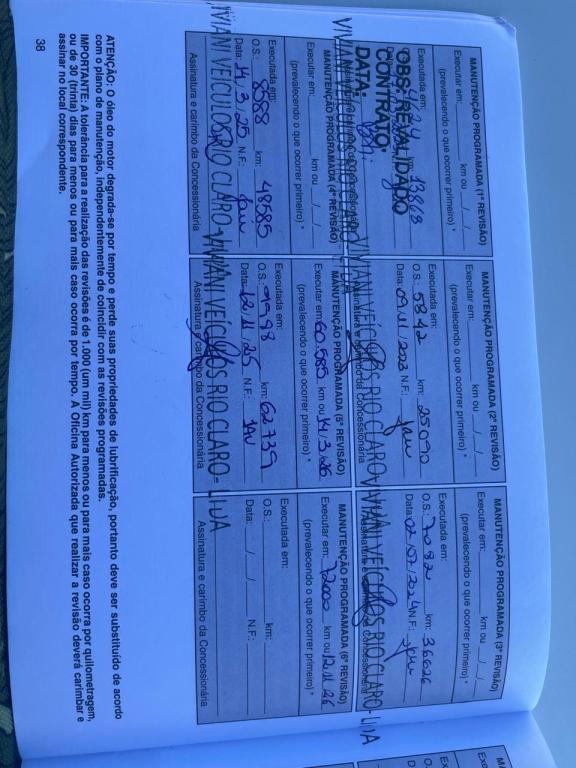 MANUTENÇÃO PROGRAMADA (1ª REVISÃO)
Executar em: km ou / /
(prevalecendo o que ocorrer primeiro) *
Executada em:
km: 13868
OBS: REVALIDADO
CONTRATO:
DATA:
VIVIANI VEÍCULOS RIO CLARO - LTDA
MANUTENÇÃO PROGRAMADA (2ª REVISÃO)
Executar em: km ou / /
(prevalecendo o que ocorrer primeiro) *
Executada em:
O.S.: 5842 km: 25090
Data: 09/11/2023 N.F.:
Assinatura e carimbo da Concessionária
VIVIANI VEÍCULOS RIO CLARO - LTDA
MANUTENÇÃO PROGRAMADA (3ª REVISÃO)
Executar em: km ou / /
(prevalecendo o que ocorrer primeiro) *
Executada em:
O.S.: 7092 km: 36626
Data: 02/07/2024 N.F.:
Assinatura e carimbo da Concessionária
VIVIANI VEÍCULOS RIO CLARO - LTDA
MANUTENÇÃO PROGRAMADA (4ª REVISÃO)
Executar em: km ou / /
(prevalecendo o que ocorrer primeiro) *
Executada em:
O.S.: 8588 km: 48585
Data: 14/3/25 N.F.:
VIVIANI VEÍCULOS RIO CLARO -
Assinatura e carimbo da Concessionária
MANUTENÇÃO PROGRAMADA (5ª REVISÃO)
Executar em: 60.585 km ou 14/3/26
(prevalecendo o que ocorrer primeiro) *
Executada em:
O.S.: 9998 km: 62739
Data: 12/11/25 N.F.:
VIVIANI VEÍCULOS RIO CLARO - LTDA
Assinatura e carimbo da Concessionária
MANUTENÇÃO PROGRAMADA (6ª REVISÃO)
Executar em: 72000 km ou 12/11/26
(prevalecendo o que ocorrer primeiro) *
Executada em:
O.S.: km:
Data: / / N.F.:
Assinatura e carimbo da Concessionária
ATENÇÃO: O óleo do motor degrada-se por tempo e perde suas propriedades de lubrificação, portanto deve ser substituído de acordo
com o plano de manutenção, independentemente de coincidir com as revisões programadas.
IMPORTANTE: A tolerância para a realização das revisões é de 1.000 (um mil) km para menos ou para mais caso ocorra por quilometragem,
ou de 30 (trinta) dias para menos ou para mais caso ocorra por tempo. A Oficina Autorizada que realizar a revisão deverá carimbar e
assinar no local correspondente.
38